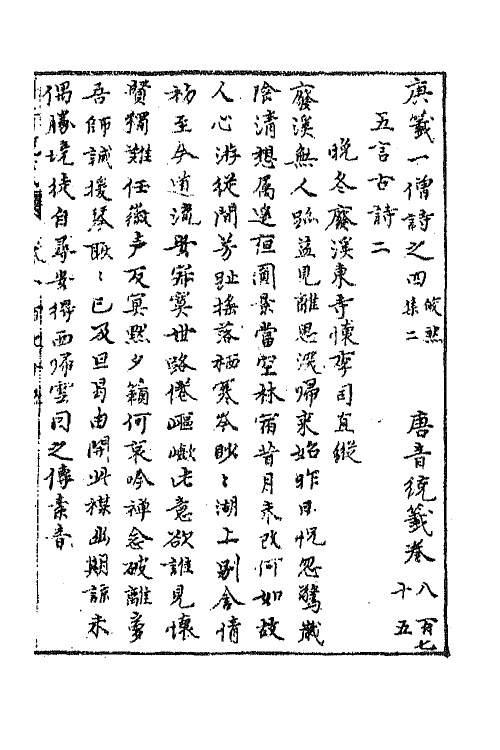 庚籤一僧詩之四 皎然集二 唐音統籤卷八百七十五
五言古詩二
晚冬廢溪東寺懷李司直縱
廢溪無人跡益見離思深歸來始昨日恍忽驚歲
陰清想屬遙夜圓景當空林宿昔月未改何如故
人心游從間芳趾搖落栖寒岑眇〻湖上別含情
初至今道流安寂寞世路倦嶇嶔此意欲誰見懷
賢獨難任微声反冥默夕籟何哀吟禅念破離夢
吾師誡援琴耿〻已及旦曷由開此襟幽期諒未
偶勝境徒自尋安得西歸雲因之傳素音